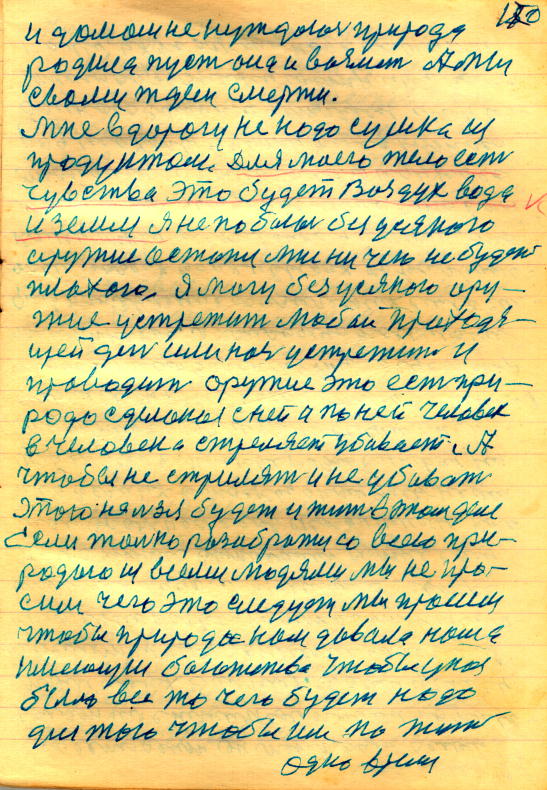 120
и домом не нуждался природа
родила пуст она и возмет А мы
своми ждем смерти.
мне в дорогу не надо сумка из
продуктом Для моего тело есть
чувства это будет Воздух вода
и земля я не поболел без усякого
оружие останусь мне ни чего не будет
плохого, я могу без усякого ору-
жие устретит любой приходя-
щей ден или ноч устретит и
проводит оружие это ест при-
рода сделоное с ней и по ней человек
в человека стреляет убивает. А
чтобы не стрилят и не убиват
этого нялзя будет и жит в этом деле
Если толко разобратис со всею при-
родою и всеми людями мы не про-
сим чего это следует мы просим
чтобы природа нам давала наша
имеющую богатства чтобы у нас
было все то чего будет надо
для того чтобы им по жит
одно время